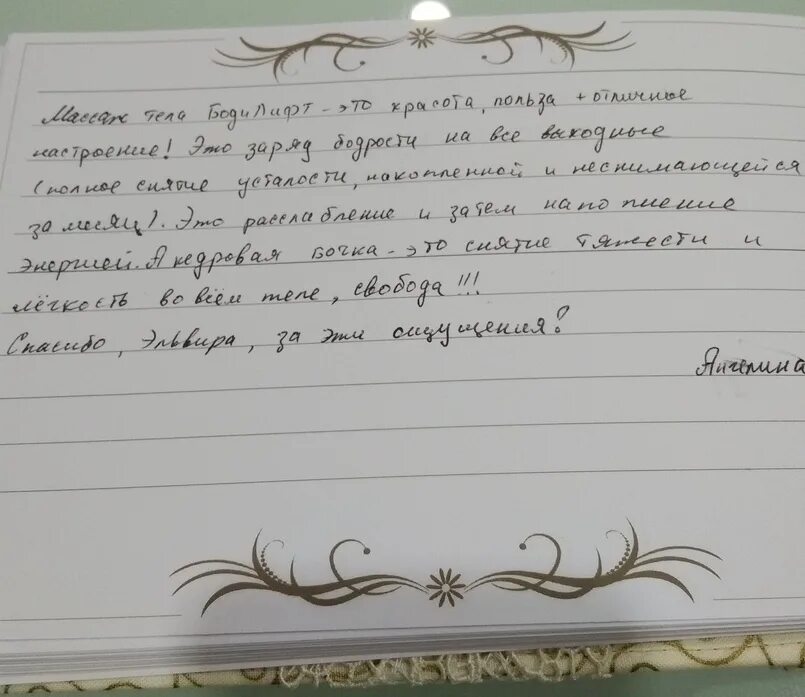 Массаж тела БодиЛифт - это красота, польза + отличное
настроение! Это заряд бодрости на все выходные
(полное снятие усталости, накопленной и неснимающейся
за месяц). Это расслабление и затем наполнение
энергией. А кедровая бочка - это снятие тяжести и
лёгкость во всём теле, свобода!!!
Спасибо, Эльвира, за эти ощущения!
Ангелина